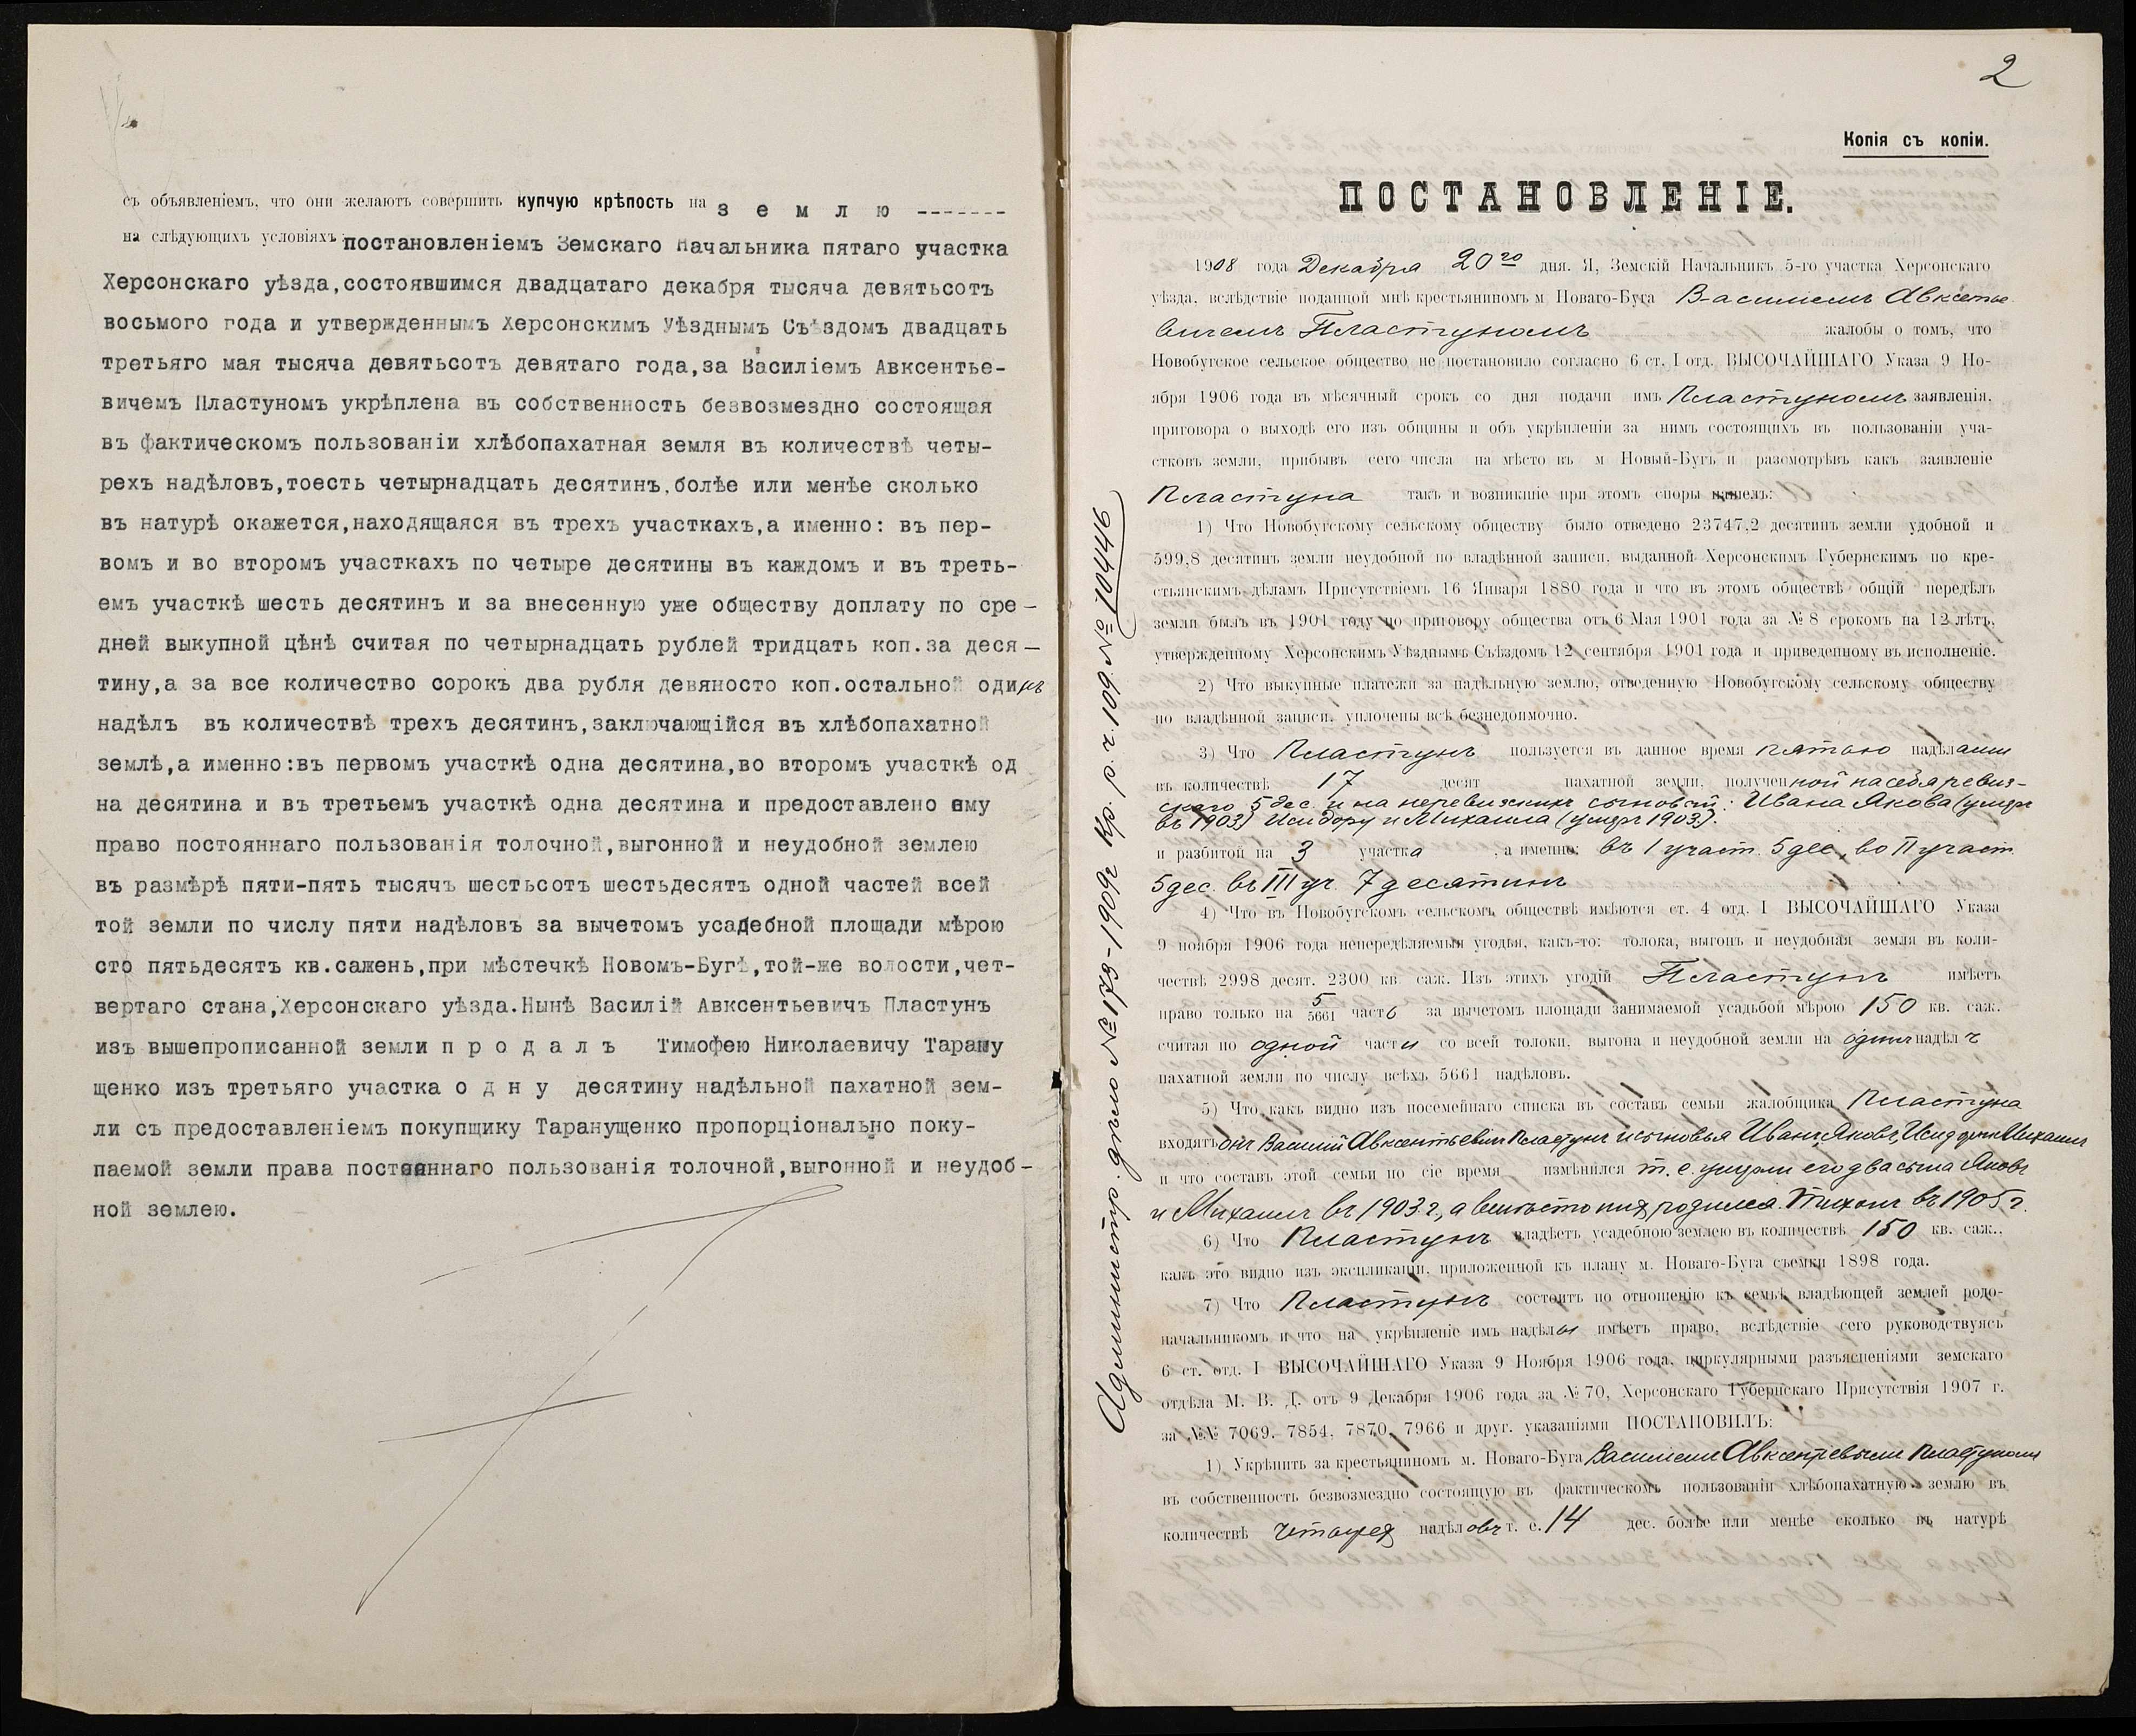 съ объявленіемъ, что они желаютъ совершить купчую крѣпость на з е м л ю -------
на слѣдующихъ условіяхъ: постановленіемъ Земскаго Начальника пятаго участка
Херсонскаго уѣзда,состоявшимся двадцатаго декабря тысяча девятьсотъ
восьмого года и утвержденнымъ Херсонскимъ Уѣзднымъ Съѣздомъ двадцать
третьяго мая тысяча девятьсотъ девятаго года,за Василіемъ Авксентье-
вичемъ Пластуномъ укрѣплена въ собственность безвозмездно состоящая
въ фактическомъ пользованіи хлѣбопахатная земля въ количествѣ четы-
рехъ надѣловъ,тоесть четырнадцать десятинъ,болѣе или менѣе сколько
въ натурѣ окажется,находящаяся въ трехъ участкахъ,а именно: въ пер-
вомъ и во второмъ участкахъ по четыре десятины въ каждомъ и въ треть-
емъ участкѣ шесть десятинъ и за внесенную уже обществу доплату по сре-
дней выкупной цѣнѣ считая по четырнадцать рублей тридцать коп.за деся-
тину,а за все количество сорокъ два рубля девяносто коп.остальной одинъ
надѣлъ въ количествѣ трехъ десятинъ,заключающійся въ хлѣбопахатной
землѣ,а именно:въ первомъ участкѣ одна десятина,во второмъ участкѣ од
на десятина и въ третьемъ участкѣ одна десятина и предоставлено ему
право постояннаго пользованія толочной,выгонной и неудобной землею
въ размѣрѣ пяти-пять тысячъ шестьсотъ шестьдесятъ одной частей всей
той земли по числу пяти надѣловъ за вычетомъ усадебной площади мѣрою
сто пятьдесятъ кв.сажень,при мѣстечкѣ Новомъ-Бугѣ,той-же волости,чет-
вертаго стана,Херсонскаго уѣзда.Нынѣ Василій Авксентьевичъ Пластунъ
изъ вышепрописанной земли п р о д а л ъ Тимофею Николаевичу Тарану
щенко изъ третьяго участка о д н у десятину надѣльной пахатной зем-
ли съ предоставленіемъ покупщику Таранущенко пропорціонально поку-
паемой земли права постояннаго пользованія толочной,выгонной и неудоб-
ной землею.
2
Копія съ копіи.
ПОСТАНОВЛЕНІЕ.
1908 года Декабря 20го дня. Я, Земскій Начальникъ 5-го участка Херсонскаго
уѣзда, вслѣдствіе поданной мнѣ крестьяниномъ м Новаго-Буга Василіемъ Авксентье
вичемъ Пластуномъ жалобы о томъ, что
Новобугское сельское общество не постановило согласно 6 ст. I отд. ВЫСОЧАЙШАГО Указа 9 Но-
ября 1906 года въ мѣсячный срокъ со дня подачи имъ Пластуномъ заявленія,
приговора о выходѣ его изъ общины и объ укрѣпленіи за нимъ состоящихъ въ пользованіи уча-
стковъ земли, прибывъ сего числа на мѣсто въ м Новый-Бугъ и разсмотрѣвъ какъ заявленіе
Пластуна такъ и возникшіе при этомъ споры нашелъ:
1) Что Новобугскому сельскому обществу было отведено 23747,2 десятинъ земли удобной и
599,8 десятинъ земли неудобной по владѣнной записи, выданной Херсонскимъ Губернскимъ по кре-
стьянскимъ дѣламъ Присутствіемъ 16 Января 1880 года и что въ этомъ обществѣ общій передѣлъ
земли былъ въ 1901 году по приговору общества отъ 6 Мая 1901 года за № 8 срокомъ на 12 лѣтъ,
утвержденному Херсонскимъ Уѣзднымъ Съѣздомъ 12 сентября 1901 года и приведенному въ исполненіе.
2) Что выкупные платежи за надѣльную землю, отведенную Новобугскому сельскому обществу
по владѣнной записи, уплочены всѣ безнедоимочно.
3) Что Пластунъ пользуется въ данное время пятью надѣлами
въ количествѣ 17 десят пахатной земли, полученной на себя ревиз-
скаго 5 дес. и на неревизкихъ сыновей: Ивана Якова (умеръ
въ 1903) Исидору и Михаила (умеръ 1903).
и разбитой на 3 участка , а именно: въ I участ. 5 дес., во II участ.
5 дес. въ III уч. 7 десятинъ
4) Что въ Новобугскомъ сельскомъ обществѣ имѣются ст. 4 отд. I ВЫСОЧАЙШАГО Указа
9 ноября 1906 года непередѣляемыя угодья, какъ-то: толока, выгонъ и неудобная земля въ коли-
чествѣ 2998 десят. 2300 кв. саж. Изъ этихъ угодій Пластунъ имѣетъ
право только на 5/5661 часть за вычетомъ площади занимаемой усадьбой мѣрою 150 кв. саж.
считая по одной части со всей толоки, выгона и неудобной земли на одинъ надѣлъ
пахатной земли по числу всѣхъ 5661 надѣловъ.
5) Что, какъ видно изъ посемейнаго списка въ составъ семьи жалобщика Пластуна
входятъ онъ Василий Авксентьевичъ Пластунъ и сыновья Иванъ Яковъ, Исидоръ и Михаилъ
и что составъ этой семьи по сіе время измѣнился т. е. умерли его два сына Яковъ
и Михаилъ въ 1903 г., а вмѣсто нихъ родился Тихонъ въ 1905 г.
6) Что Пластунъ владѣетъ усадебною землею въ количествѣ 150 кв. саж.,
какъ это видно изъ экспликаціи, приложенной къ плану м. Новаго-Буга съемки 1898 года.
7) Что Пластунъ состоитъ по отношенію къ семьѣ владѣющей землей родо-
начальникомъ и что на укрѣпленіе имъ надѣлы имѣетъ право, вслѣдствіе сего руководствуясь
6 ст. отд. I ВЫСОЧАЙШАГО Указа 9 Ноября 1906 года, циркулярными разъясненіями земскаго
отдѣла М. В. Д. отъ 9 Декабря 1906 года за № 70, Херсонскаго Губернскаго Присутствія 1907 г.
за №№ 7069, 7854, 7870, 7966 и друг. указаніями ПОСТАНОВИЛЪ:
1) Укрѣпить за крестьяниномъ м. Новаго-Буга Василіемъ Авксентьевичемъ Пластуномъ
въ собственность безвозмездно состоящую въ фактическомъ пользованіи хлѣбопахатную землю въ
количествѣ четырехъ надѣловъ т. е. 14 дес. болѣе или менѣе сколько въ натурѣ
Администр. дѣло № 179-1909г Кр. р. г. 109 № 10446